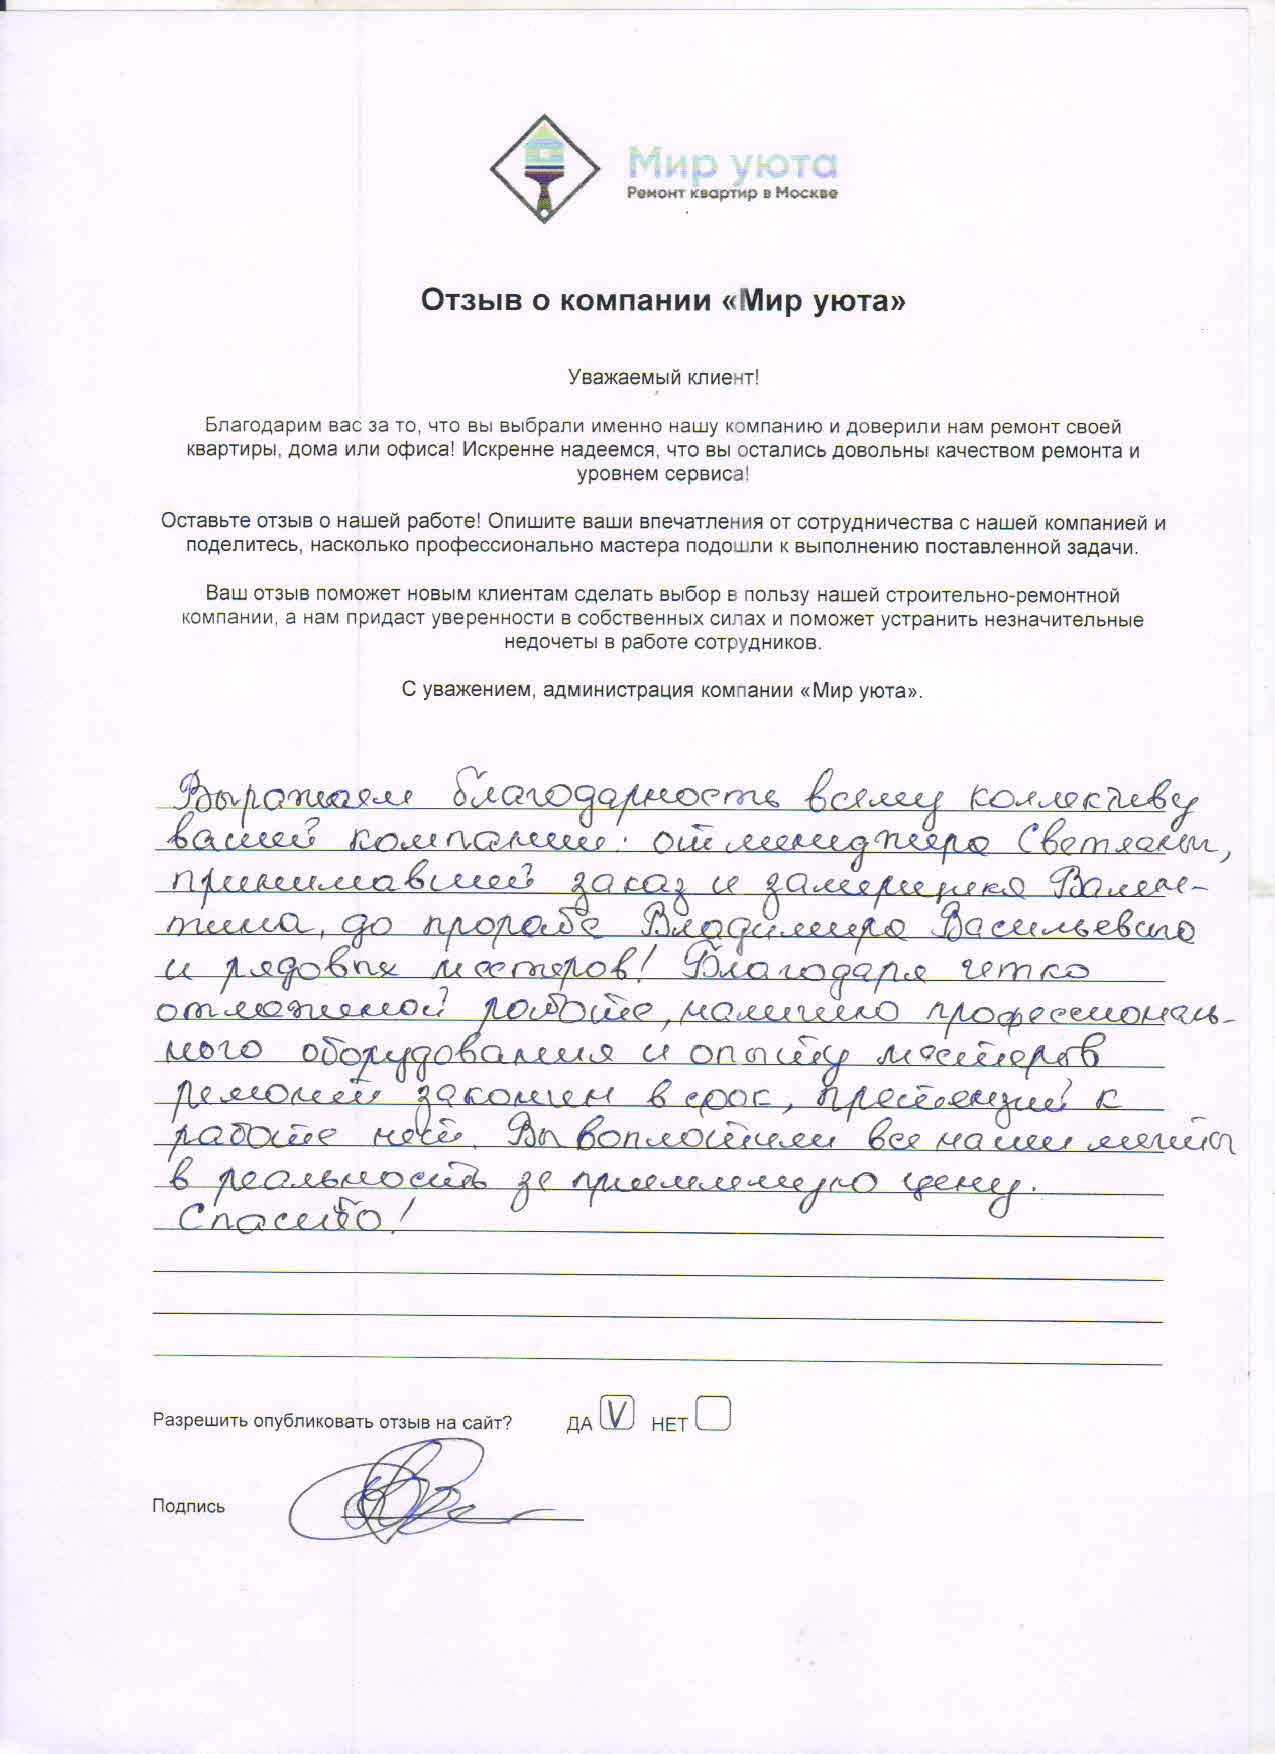 Мир уюта
Ремонт квартир в Москве
Отзыв о компании «Мир уюта»
Уважаемый клиент!
Благодарим вас за то, что вы выбрали именно нашу компанию и доверили нам ремонт своей
квартиры, дома или офиса! Искренне надеемся, что вы остались довольны качеством ремонта и
уровнем сервиса!
Оставьте отзыв о нашей работе! Опишите ваши впечатления от сотрудничества с нашей компанией и
поделитесь, насколько профессионально мастера подошли к выполнению поставленной задачи.
Ваш отзыв поможет новым клиентам сделать выбор в пользу нашей строительно-ремонтной
компании, а нам придаст уверенности в собственных силах и поможет устранить незначительные
недочеты в работе сотрудников.
С уважением, администрация компании «Мир уюта».
Выражаем благодарность всему коллективу
вашей компании: от менеджера Светланы,
принимавшей заказ и замерщика Вален-
тина, до прораба Владимира Васильевича
и рядовых мастеров! Благодаря четко
отлаженной работе, наличию профессиональ-
ного оборудования и опыту мастеров
ремонт закончен в срок, претензий к
работе нет. Вы воплотили все наши мечты
в реальность за приемлемую цену.
Спасибо!
Разрешить опубликовать отзыв на сайт? ДА V НЕТ
Подпись